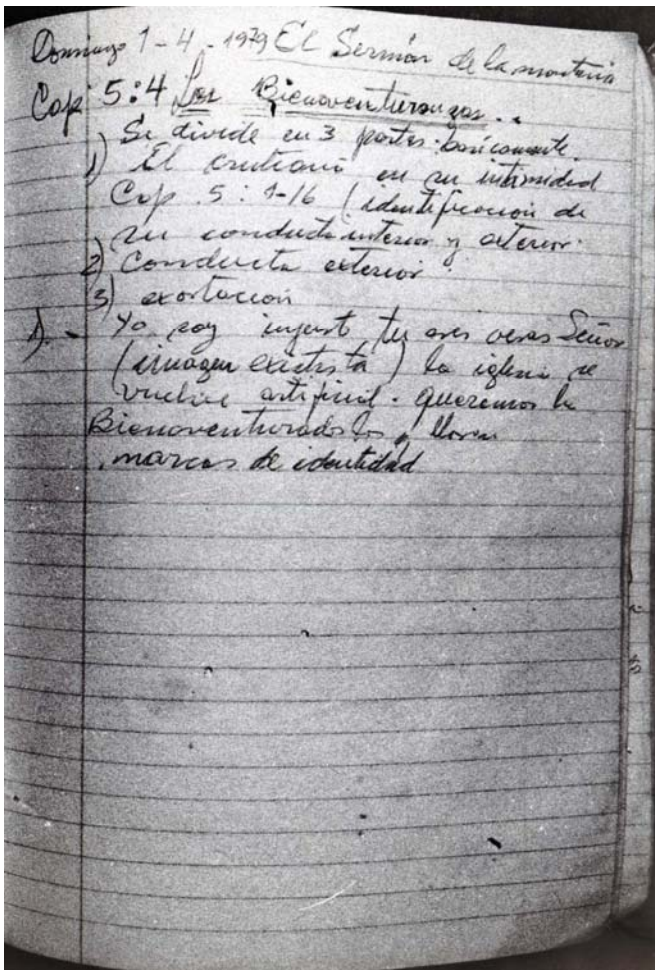 Domingo 1-4-1979 El Sermón de la montaña
Cap 5:4 Las Bienaventuranzas..
Se divide en 3 partes: basicamente.
1) El cristiano en su intimidad
Cap. 5: 1-16 (identificacion de
su conducta interior y exterior.
2) Conducta exterior.
3) exortacion
Yo soy tu eres Señor
(imagen ) la iglesia se
vuelve artificial. queremos la
Bienaventurados los q lloran
marcas de identidad